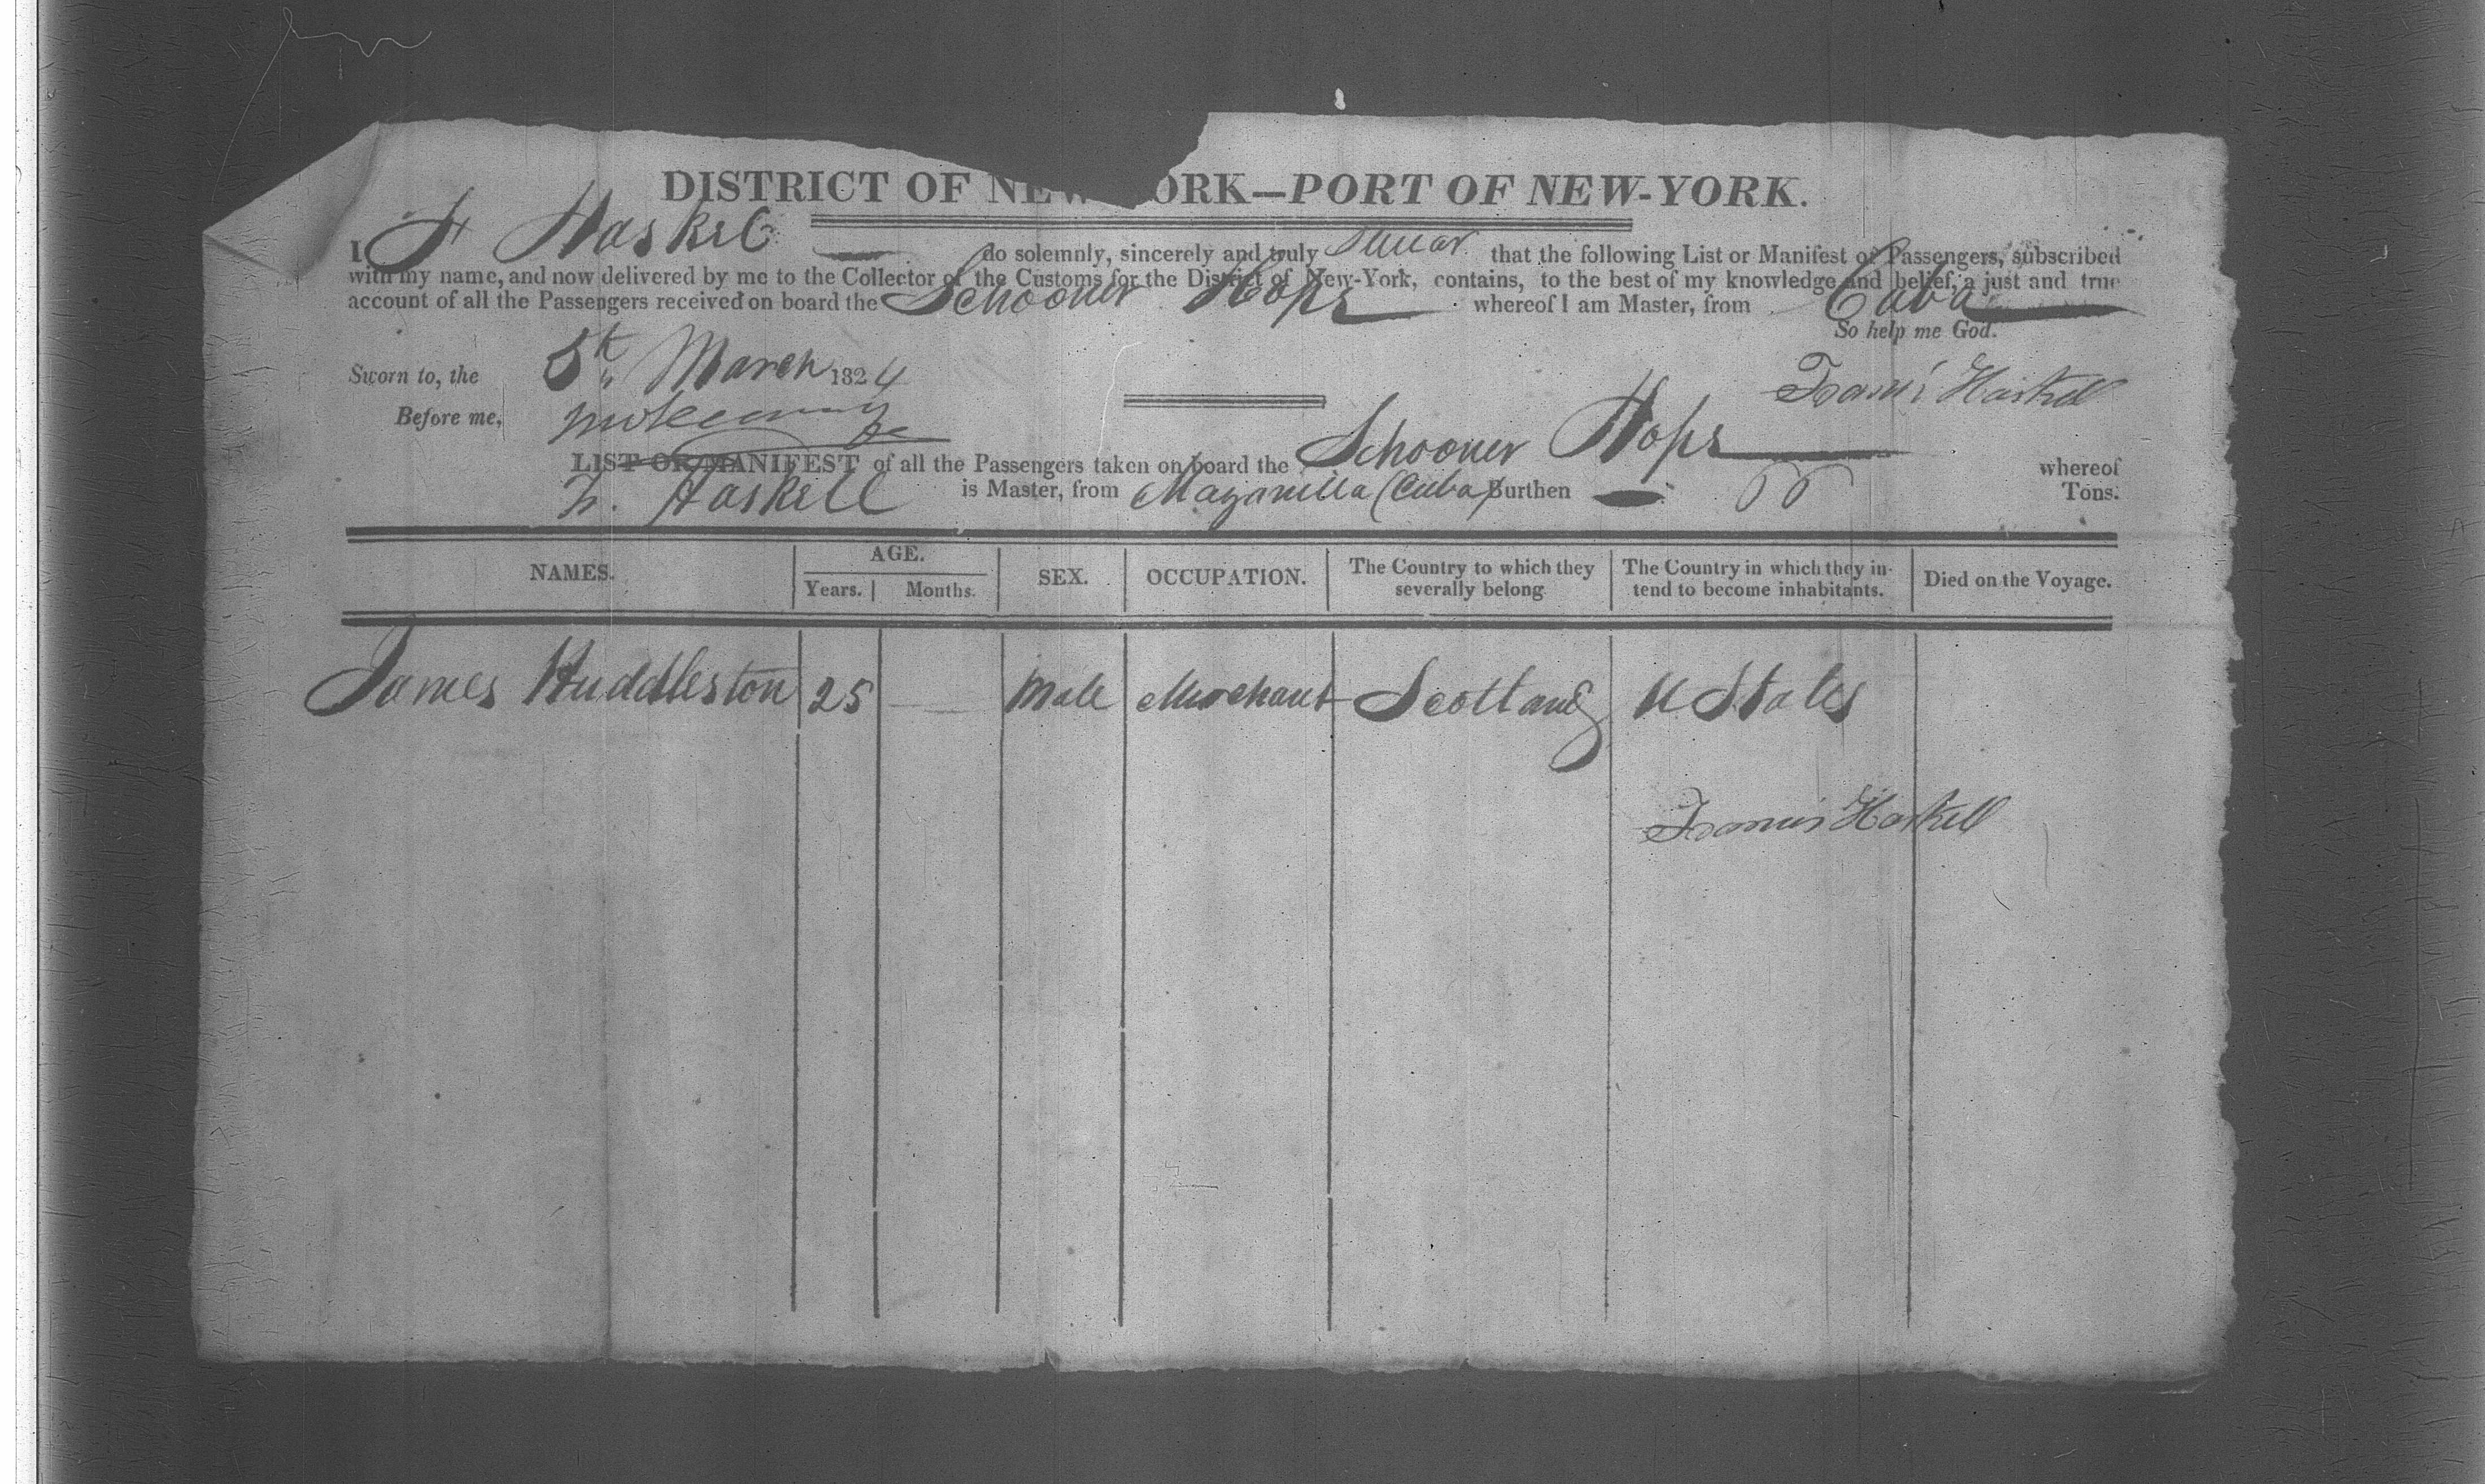 DISTRICT OF NEW YORK—PORT OF NEW-YORK.
I F Haskell do solemnly, sincerely and truly swear that the following List or Manifest of Passengers, subscribed
with my name, and now delivered by me to the Collector of the Customs for the District of New-York, contains, to the best of my knowledge and belief, a just and true
account of all the Passengers received on board the Schooner Hope whereof I am Master, from Cuba
So help me God.
Sworn to, the 5th March 1824 Francis Haskell
Before me,
LIST OR MANIFEST of all the Passengers taken on board the Schooner Hope whereof
F. Haskell is Master, from Mazanilla (Cuba) Burthen Tons.
NAMES. AGE. SEX. OCCUPATION. The Country to which they severally belong The Country in which they in-tend to become inhabitants. Died on the Voyage.
Years. Months.
James Huddleston 25 — Male Merchant Scotland U States
Francis Haskell